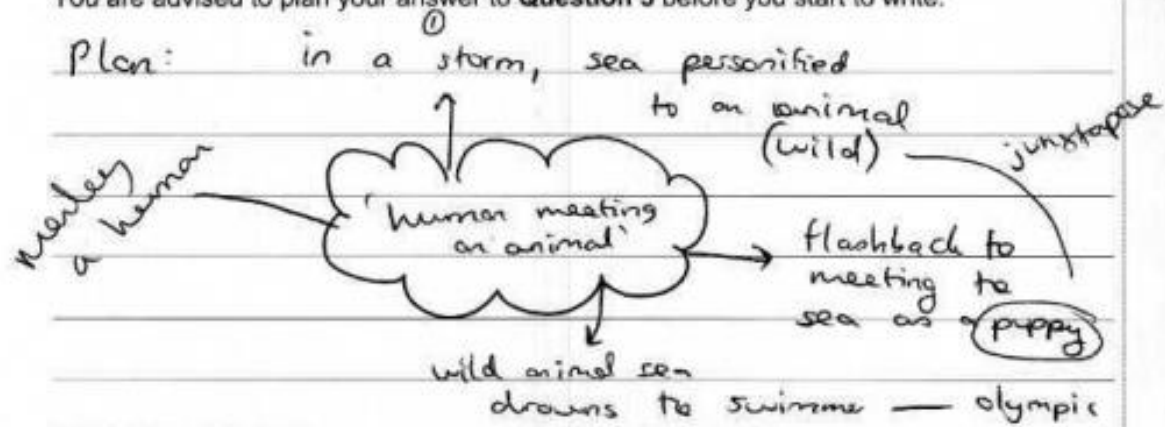 You are advised to plan your answer to Question 5 before you start to write.
①
Plan: in a storm, sea personified
to an animal
(wild)
juxtapose
merley
a human
'human meeting
an animal'
flashback to
meeting the
sea as a puppy
wild animal sea
drowns the swimmer — olympic